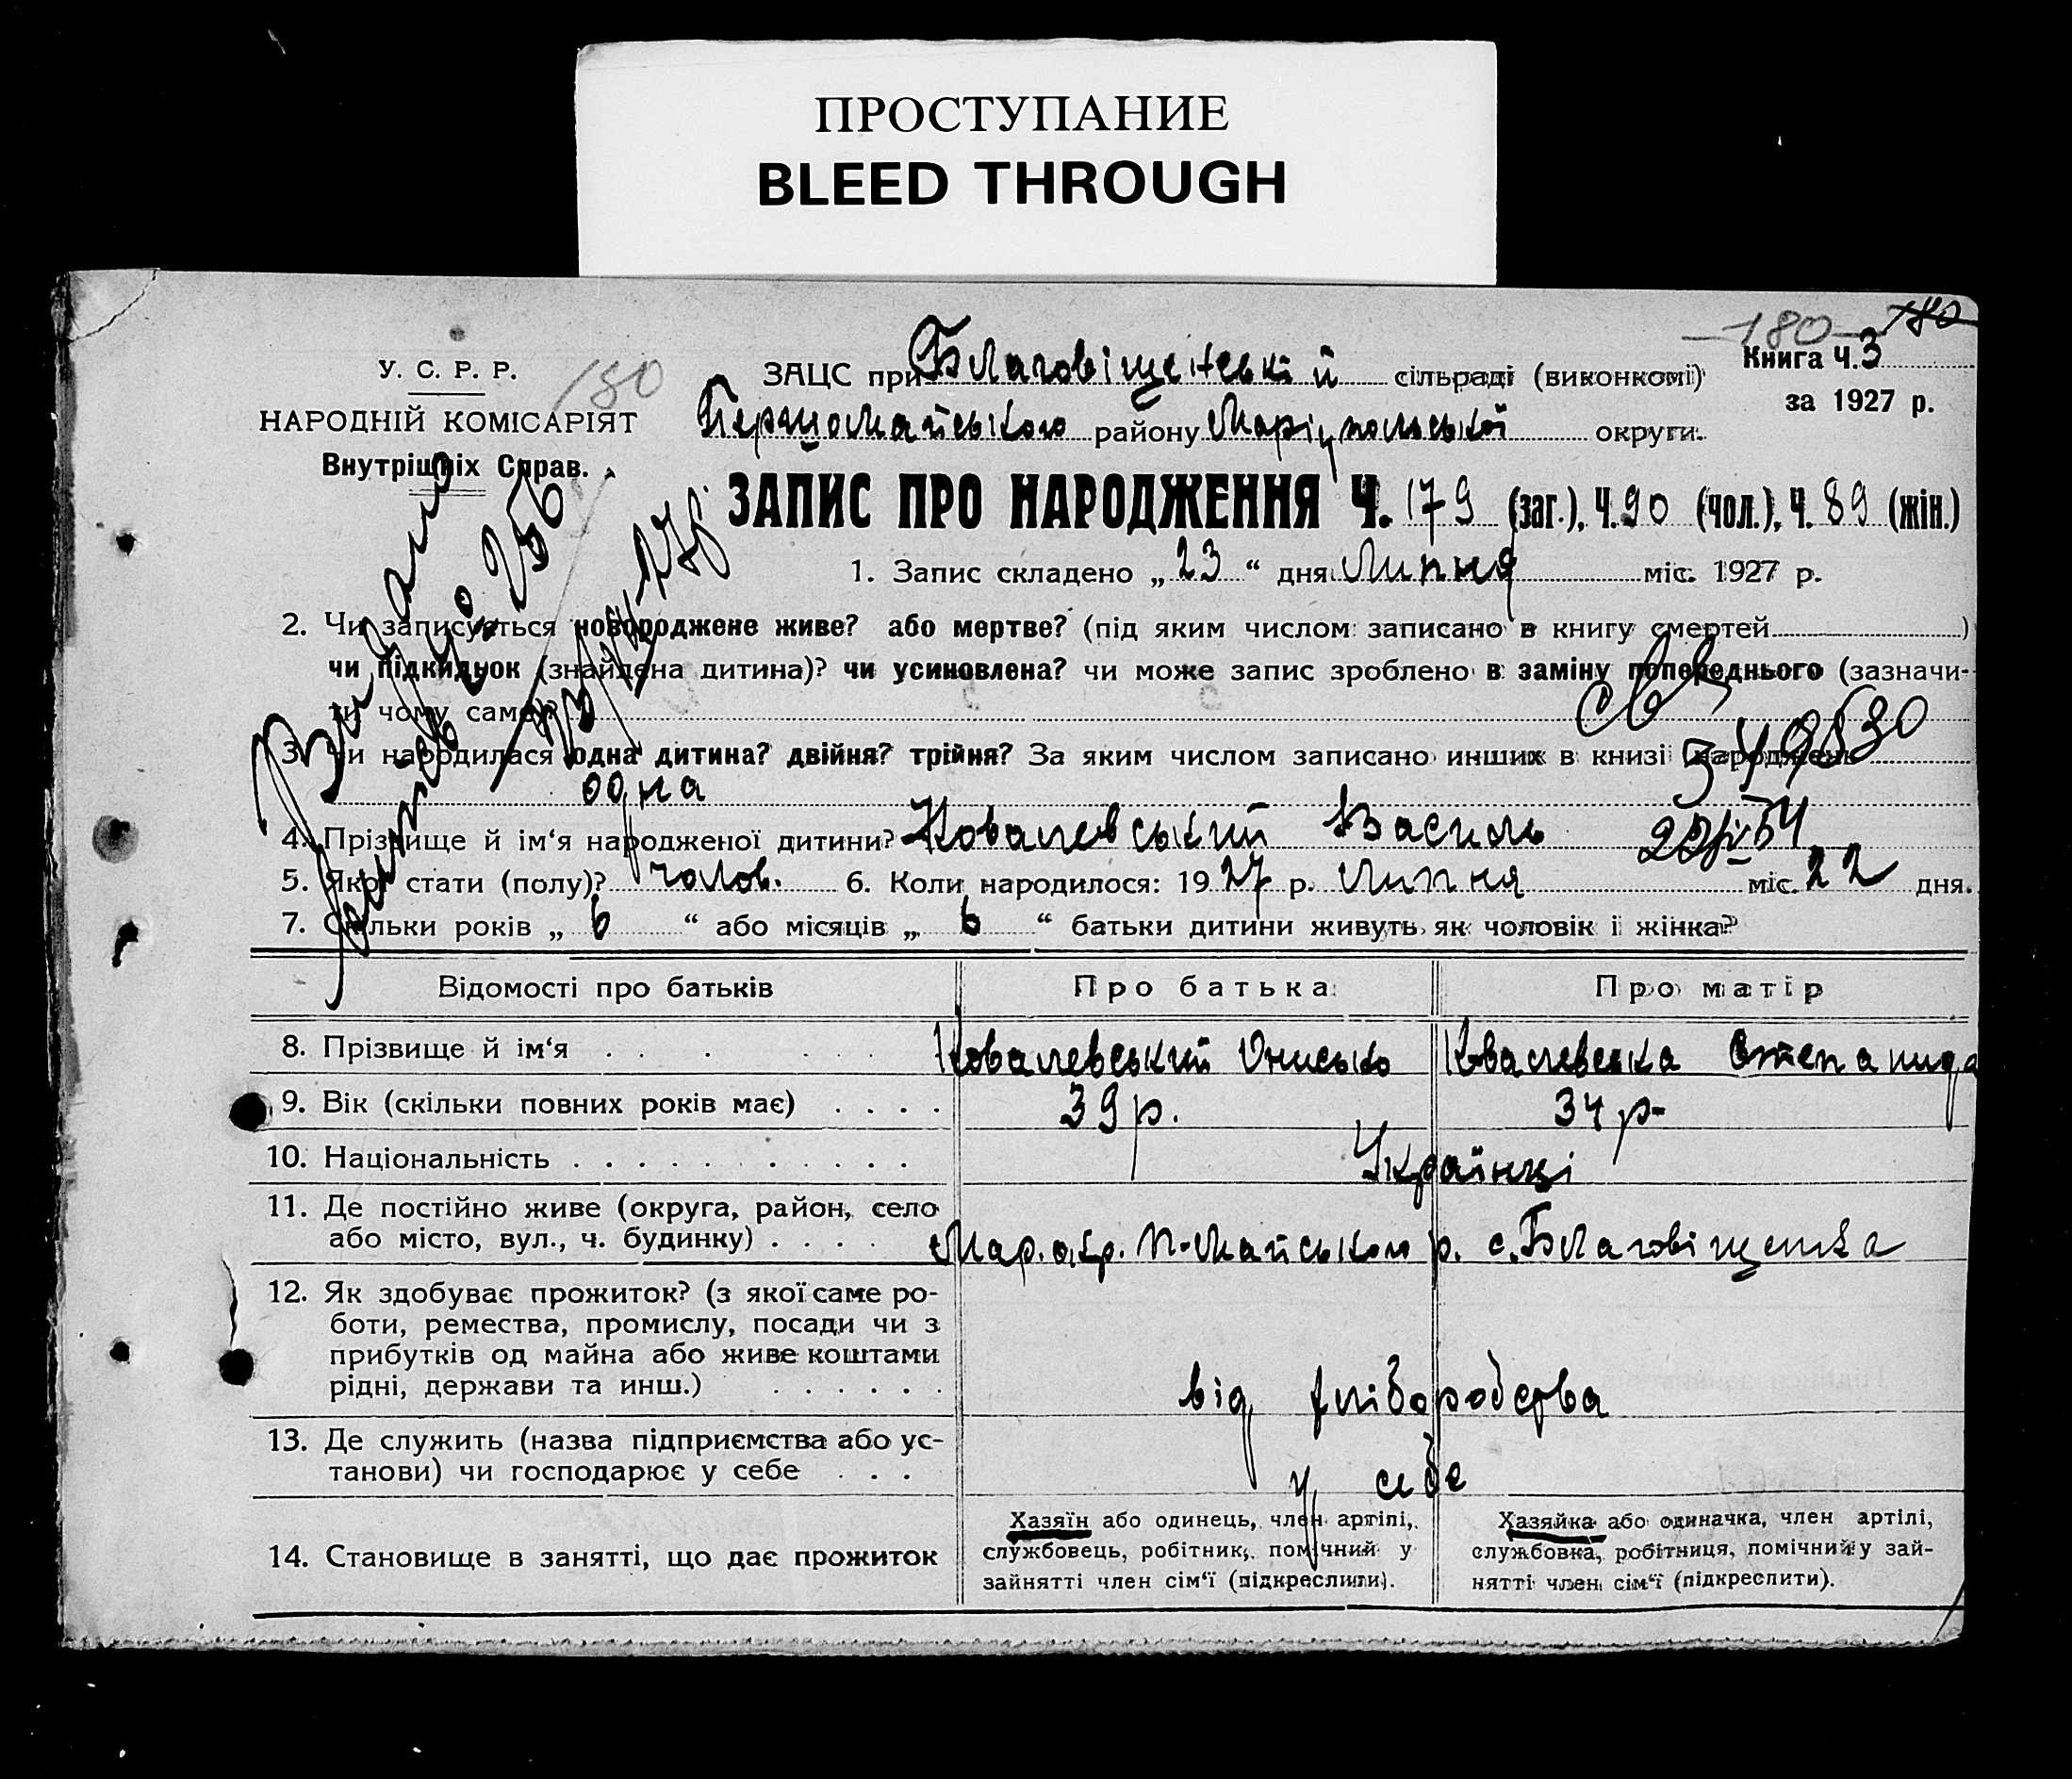 ПРОСТУПАНИЕ
BLEED THROUGH
-180- 180
У. С. Р. Р. 180
НАРОДНІЙ КОМІСАРІЯТ
Внутрішніх Справ.
ЗАЦС при Благовіщенській сільраді (виконкомі)
Книга Ч. 3
за 1927 р.
Першомайського району Маріупольської округи.
ЗАПИС ПРО НАРОДЖЕННЯ Ч. 179 (заг.), Ч. 90 (чол.), Ч. 89 (жін.)
1. Запис складено „23“ дня Липня міс. 1927 р.
2. Чи записується новороджене живе? або мертве? (під яким числом записано в книгу смертей )
чи підкидьок (знайдена дитина)? чи усиновлена? чи може запис зроблено в заміну попереднього (зазначи-
ти чому саме?
3. Чи народилася одна дитина? двійня? трійня? За яким числом записано инших в книзі народжень
одна
4. Прізвище й ім‘я народженої дитини? Ковалевський Василь
5. Якої стати (полу)? чолов. 6. Коли народилося: 1927 р. Липня міс. 22 дня.
7. Скільки років „6“ або місяців „6“ батьки дитини живуть як чоловік і жінка?
Відомості про батьків Про батька Про матір
8. Прізвище й ім‘я Ковалевський Онисько Квалевська Степанида
9. Вік (скільки повних років має) 39 р. 34 р.
10. Національність Українці
11. Де постійно живе (округа, район, село
або місто, вул., ч. будинку) Мар. окр. П-Майського р. с. Благовіщенка
12. Як здобуває прожиток? (з якої саме ро-
боти, ремества, промислу, посади чи з
прибутків од майна або живе коштами
рідні, держави та инш.) від хліборобства
13. Де служить (назва підприємства або ус-
танови) чи господарює у себе у себе
14. Становище в занятті, що дає прожиток
Хазяїн або одинець, член артілі,
службовець, робітник, помічний у
зайнятті член сім‘ї (підкреслити).
Хазяйка або одиначка, член артілі,
службовка, робітниця, помічний у зай-
нятті член сім‘ї (підкреслити).